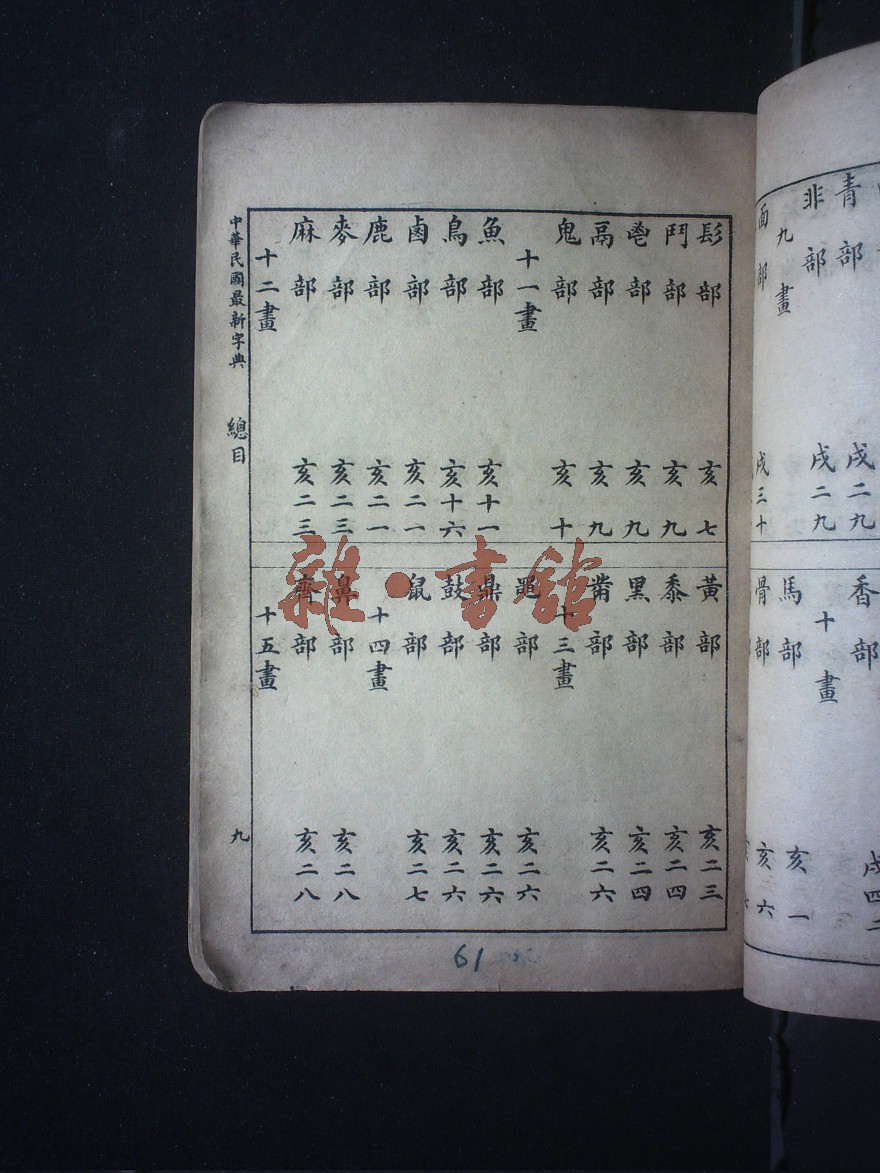 青部 戌二九
非部 戌二九
九畫
面部 戌三十
香部 戌四二
十畫
馬部 亥一
骨部 亥六
髟部 亥七
鬥部 亥九
鬯部 亥九
鬲部 亥九
鬼部 亥十
十一畫
魚部 亥十一
鳥部 亥十六
鹵部 亥二一
鹿部 亥二一
麥部 亥二三
麻部 亥二三
十二畫
黃部 亥二三
黍部 亥二四
黑部 亥二四
黹部 亥二六
十三畫
黽部 亥二六
鼎部 亥二六
鼓部 亥二六
鼠部 亥二七
十四畫
鼻部 亥二八
齊部 亥二八
十五畫
中華民國最新字典 總目 九
雜·書館
61